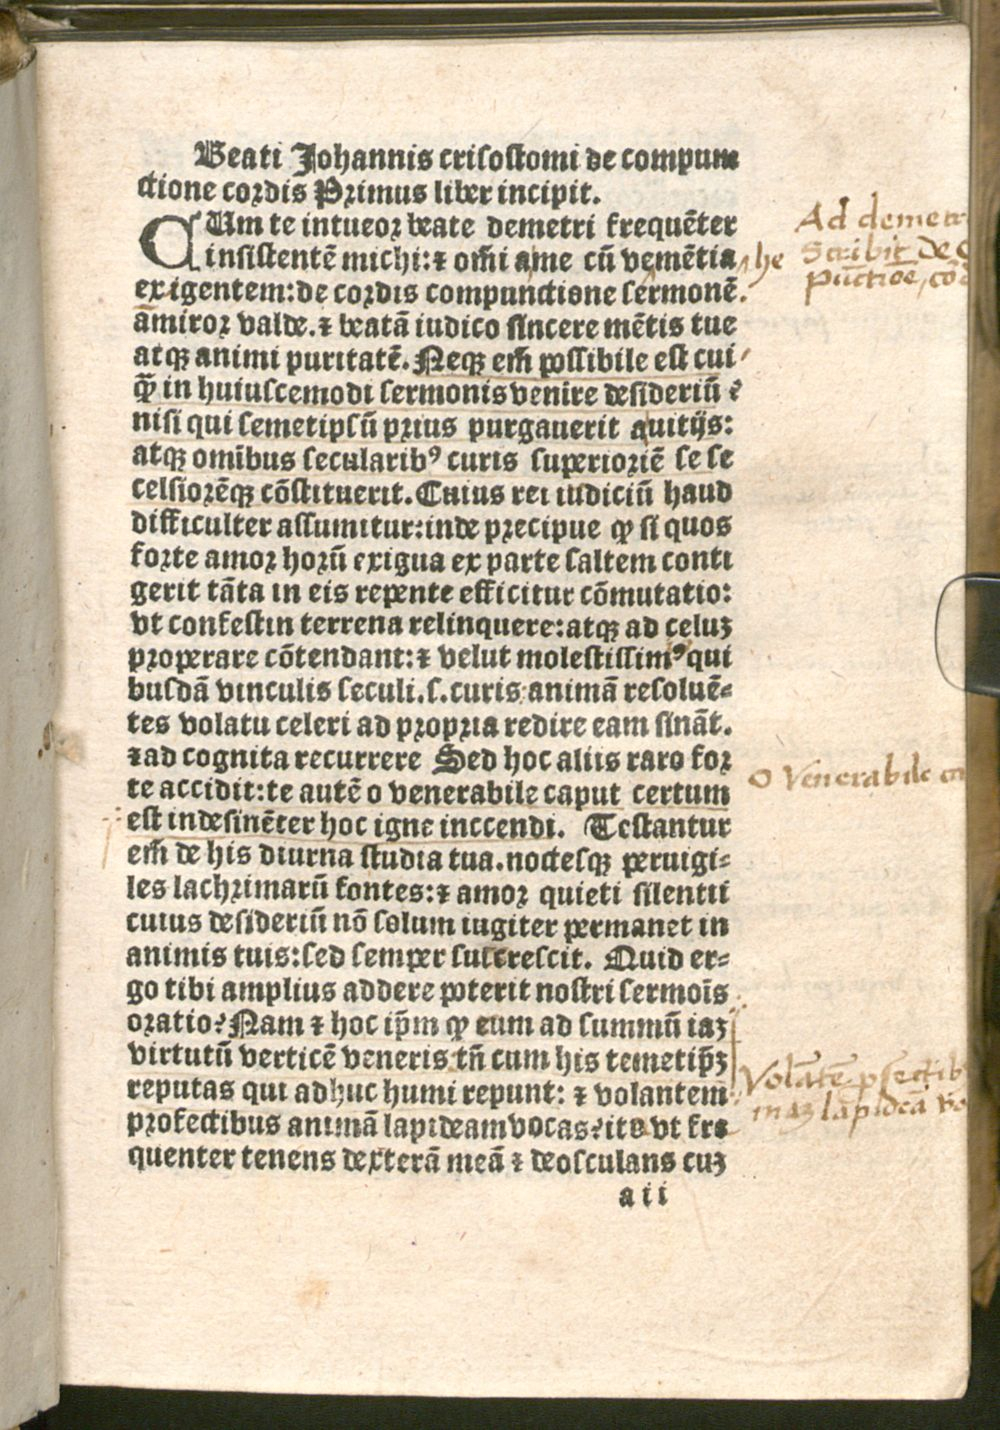 Beati Johannis crisostomi de compun
ctione cordis Primus liber incipit.
CUm te intueor beate demetri frequēter
insistentē michi: ⁊ om̄i a me cū vemētia
exigentem: de cordis compunctione sermonē.
āmiror valde. ⁊ beatā iudico sincere mētis tue
atqꝫ animi puritatē. Neqꝫ em̄ possibile est cui
qꝫ̄ in huiuscemodi sermonis venire desideriū ?
nisi qui semetipsū prius purgauerit a uitijs:
atqꝫ omībus secularibꝰ curis superioriē se se
celsiorēqꝫ cōstituerit. Cuius rei iudiciū haud
difficulter assumitur: inde precipue ꝙ si quos
forte amor horū exigua ex parte saltem conti
gerit tāta in eis repente efficitur cōmutatio:
vt confestin terrena relinquere: atqꝫ ad celuꝫ
properare cōtendant: ⁊ velut molestissimꝰ qui
busdā vinculis seculi .s. curis animā resoluē-
tes volatu celeri ad propria redire eam sināt.
⁊ ad cognita recurrere Sed hoc aliis raro for
te accidit: te autē o venerabile caput certum
est indesinēter hoc igne inccendi. Testantur
em̄ de his diurna studia tua. noctesqꝫ peruigi-
les lachrimarū fontes: ⁊ amor quieti silentii
cuius desideriū nō solum iugiter permanet in
animis tuis: sed semper succrescit. Quid er-
go tibi amplius addere poterit nostri sermoīs
oratio? Nam ⁊ hoc ip̄m ꝙ cum ad summū iaꝫ
virtutū verticē veneris tn̄ cum his temetip̄ꝫ
reputas qui adhuc humi repunt: ⁊ volantem
profectibus animā lapideam vocas? ita vt fre
quenter tenens dexterā meā ⁊ deosculans cuꝫ
a ii
Ad demetr
Scribit De
pūctioe, co
he
O Venerabile
Volātē pfectib
lapideā vo